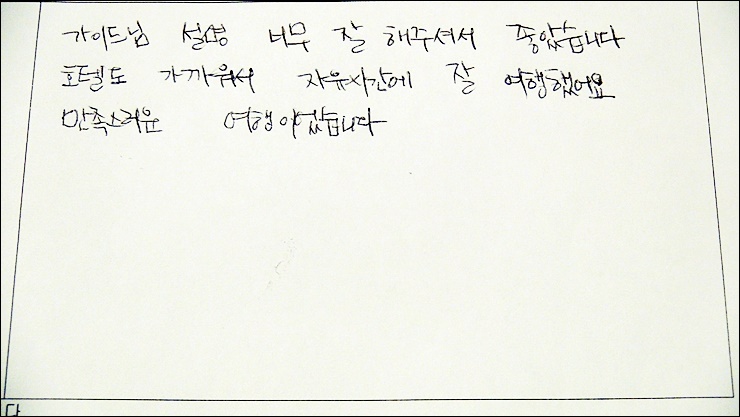 가이드님 설명 너무 잘 해주셔서 좋았습니다
호텔도 가까워서 자유시간에 잘 여행했어요
만족스러운 여행이었습니다
다